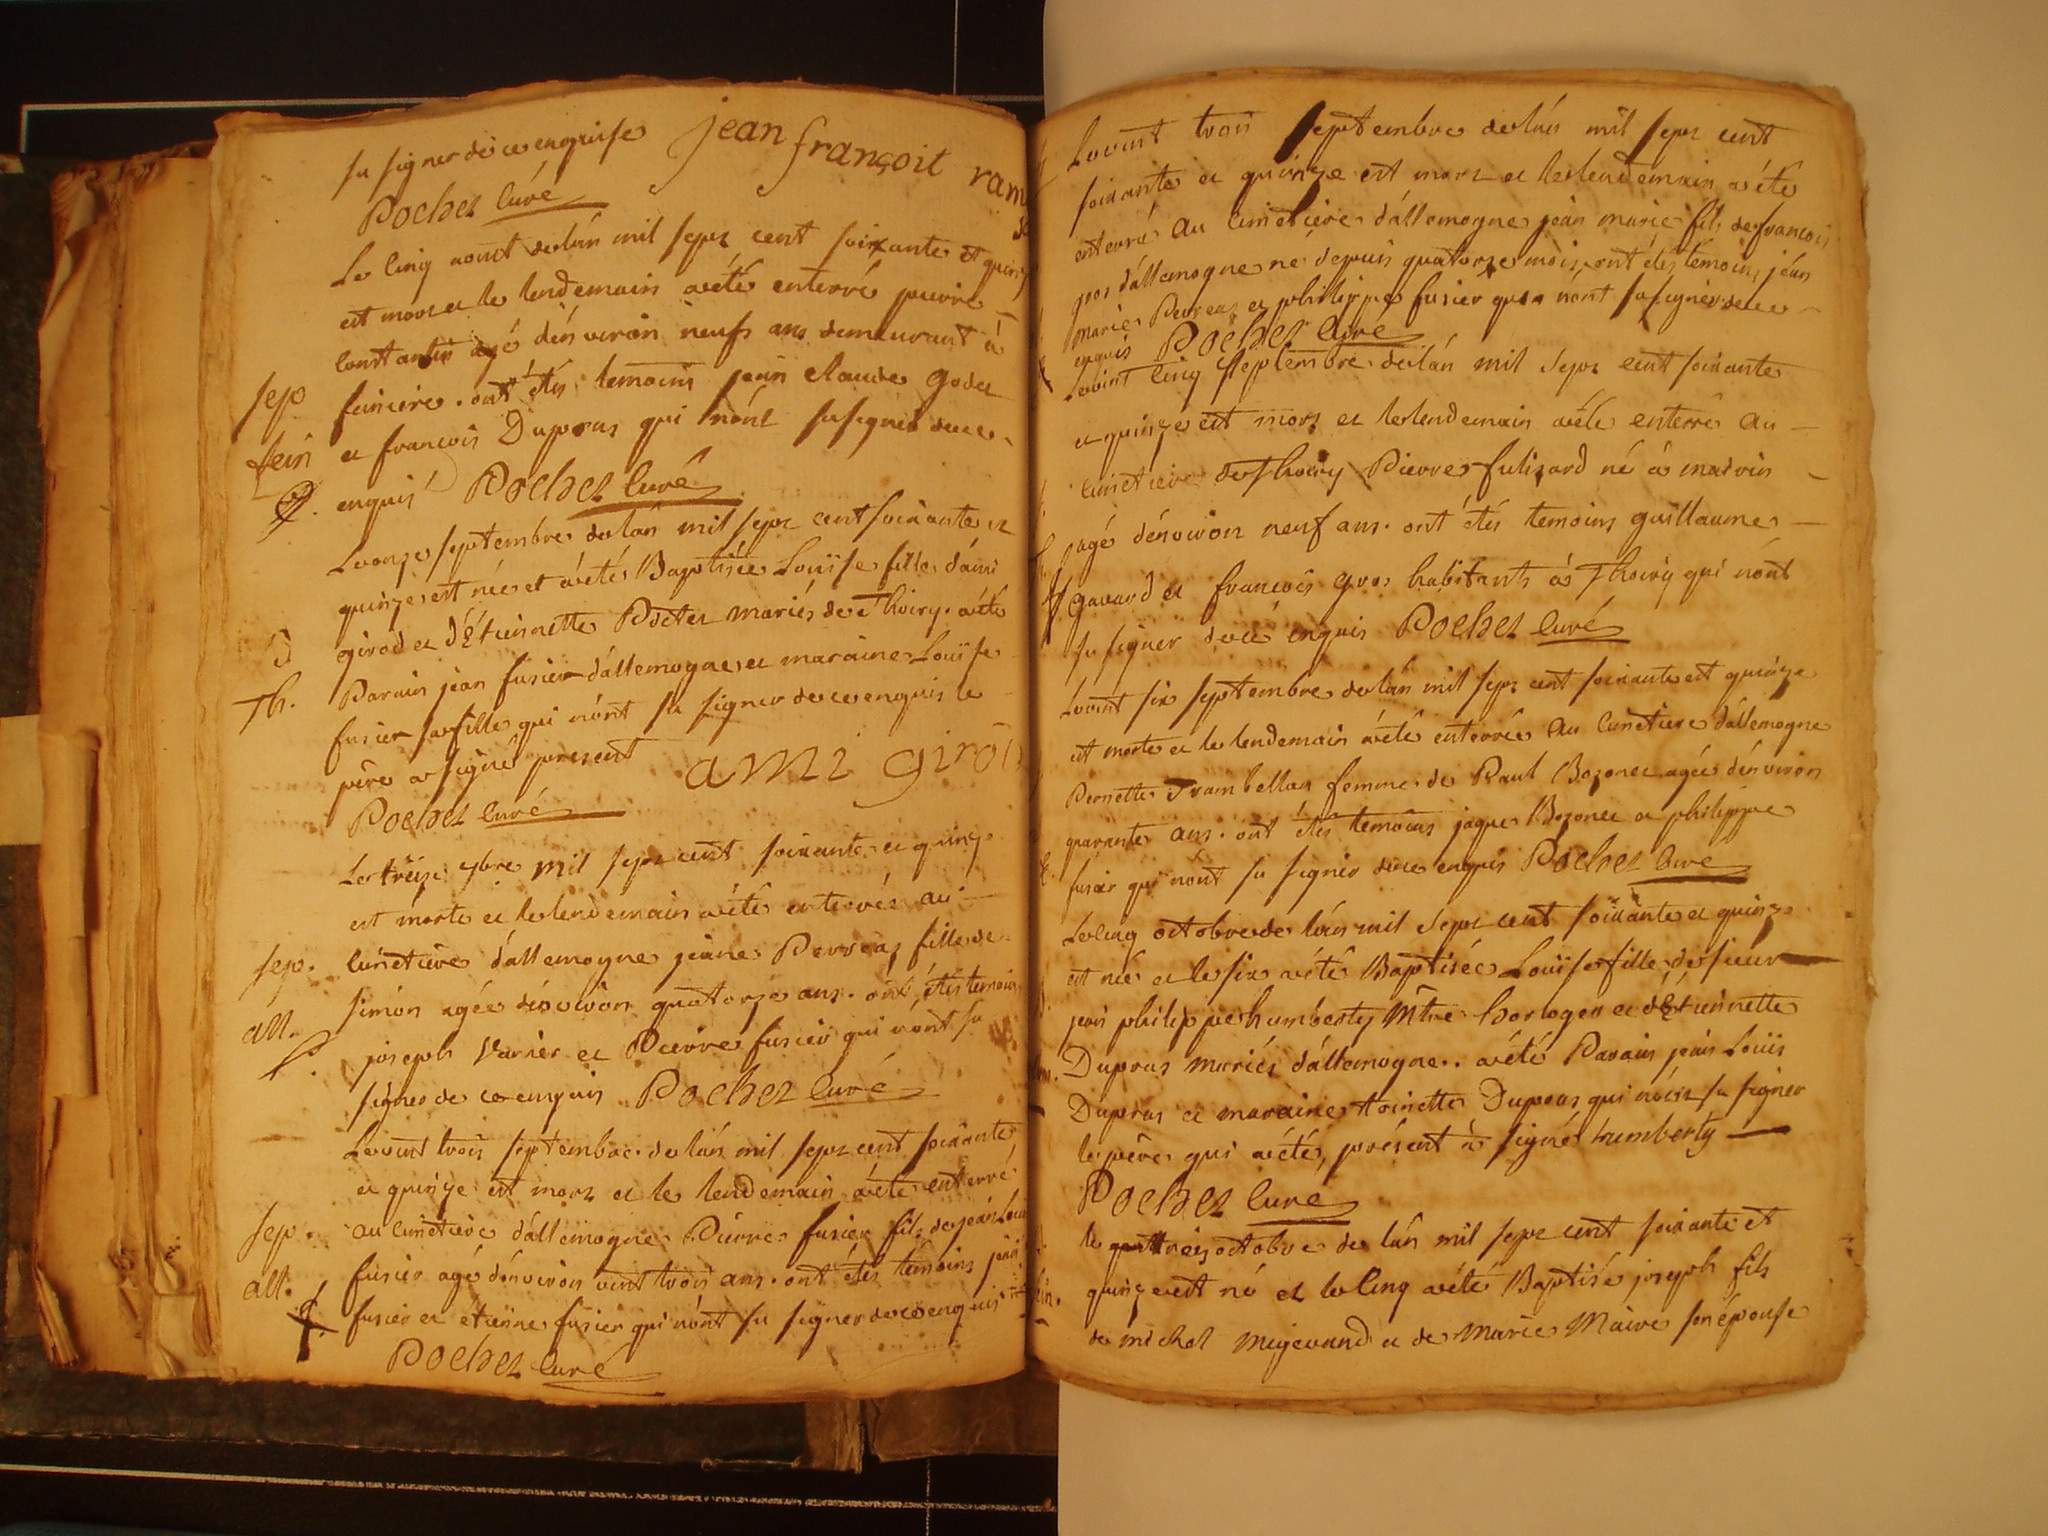 su signer de ce enquise jean françoit ram
Pochet Curé
Le cinq aout de lán mil sept cent soixante et quinz
est mort et le lendemain aété enterré pierre
Constantin agé dénviron neufs ans demeurant á
sep feniere. ont étés temoins jean claude godet
fein et francois Duparas qui nónt su signer de ce
enquis Pochet Curé
Le onze septembre de lán mil sept cent soixante et
quinze est née et aété Baptisée Louïse fille dámi
girod et dÉtiennette Poctet mariés de Thoiry. aété
Th. Parain jean fusier dállemogne et maraine Louïse
fusier sa fille qui nónt su signer de ce enquis le
père a signé present ami girod
Pochet Curé
Le treize 7bre mil sept cent soixante et quinze
est morte et le lendemain aété enterrée au
sep. Cimetiere dállemogne jeane Perreaz fille de
all. simón agée dénviron quatorze ans. ont étés temoins
joseph Varnier et Pierre fusier qui nónt su
signer de ce enquis Pochet Curé
Le vint trois septembre de lán mil sept cent soixante
et quinze est mort et le lendemain aété enterré
sep. au Cimetiere dállemogne Pierre fusier fils de jean Louis
all. fusier agé dénviron vint trois ans. ont étés temoins jean
fusier et étienne fusier qui nónt su signer de ce enquis
Pochet Curé
Le vint trois septembre de lán mil sept cent
soixante et quinze est mort et le lendemain aété
enterré au Cimetiere dállemogne jean marie fils de francois
gros dállemogne né depuis quatorze mois. ont étés temoins jean
marie Perreaz et philippe fusier qui nónt su signer de ce
enquis Pochet Curé
Le vint cinq septembre de lán mil sept cent soixante
et quinze est mort et le lendemain aété enterré au
Cimetiere de Thoiry Pierre fulizard né á mairin
agé dénviron neuf ans. ont étés temoins guillaume
gavard et francois gros habitants á Thoiry qui nónt
su signer de ce enquis Pochet Curé
Le vint six septembre de lán mil sept cent soixante et quinze
est morte et le lendemain aété enterrée au Cimetiere dállemogne
Pernette Trambellan femme de Paul Bozonet agée dénviron
quarante ans. ont étés temoins jaque Bozonet et philippe
fusier qui nónt su signer de ce enquis Pochet Curé
Le cinq octobre de lán mil sept cent soixante et quinze
est née et le six aété Baptisée Louïse fille de sieur
jean philippe humberty Mtre horloger et dÉtiennette
Duparas mariés dállemogne.. aété Parain jean Louïs
Duparas et maraine toinette Duparas qui nónt su signer
le père qui aété, présent á signé humberty
Pochet Curé
le octobre de lán mil sept cent soixante et
quinze est né et le cinq aété Baptisé joseph fils
de michel migevand et de Marie Maire son épouse